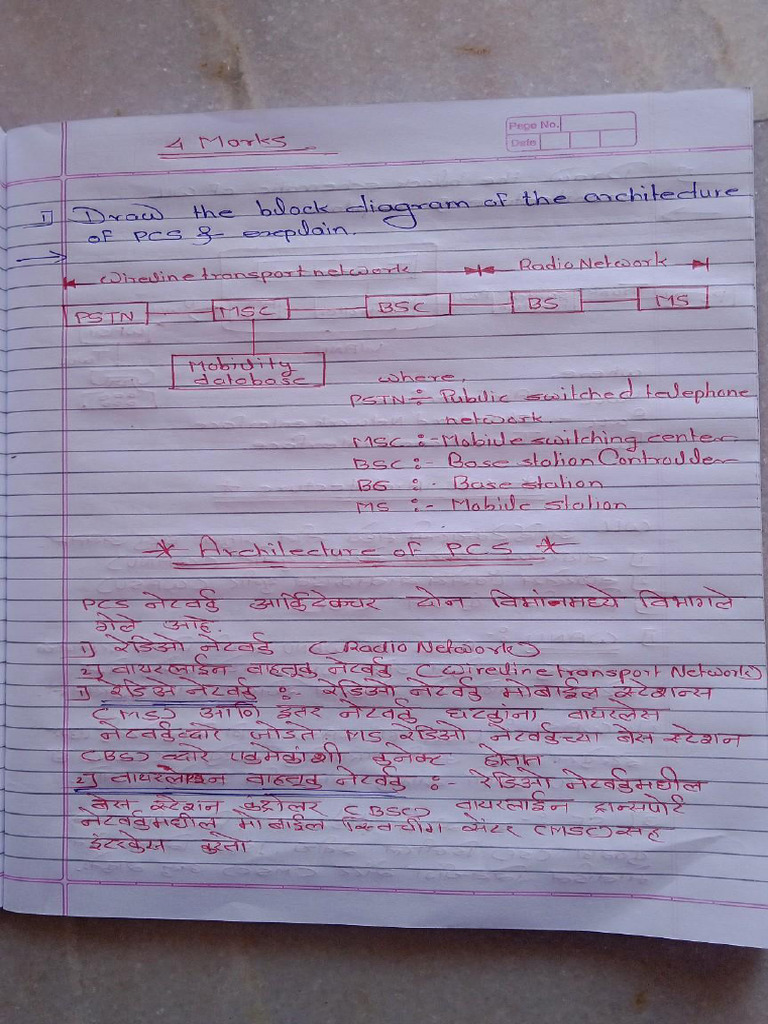 4 Marks
Page No.
Date
1) Draw the block diagram of the architecture
of PCS & explain.
→
Wireline transport network Radio Network
PSTN MSC BSC BS MS
Mobility
database
where,
PSTN :- Public switched telephone
network.
MSC :- Mobile switching center
BSC :- Base station Controller
BS :- Base station
MS :- Mobile station
* Architecture of PCS *
PCS नेटवर्क आर्किटेक्चर दोन विभागांमध्ये विभागले
गेले आहे.
1) रेडिओ नेटवर्क (Radio Network)
2) वायरलाईन वाहतूक नेटवर्क (Wireline transport Network)
1) रेडिओ नेटवर्क :- रेडिओ नेटवर्क मोबाईल स्टेशन्स
(MS) आणि इतर नेटवर्क घटकांना वायरलेस
नेटवर्कद्वारे जोडते. MS रेडिओ नेटवर्कच्या बेस स्टेशन
(BS) द्वारे एकमेकांशी कनेक्ट होतात.
2) वायरलाईन वाहतूक नेटवर्क :- रेडिओ नेटवर्कमधील
बेस स्टेशन कंट्रोलर (BSC) वायरलाईन ट्रान्सपोर्ट
नेटवर्कमधील मोबाईल स्विचींग सेंटर (MSC) सह
इंटरफेस करतो